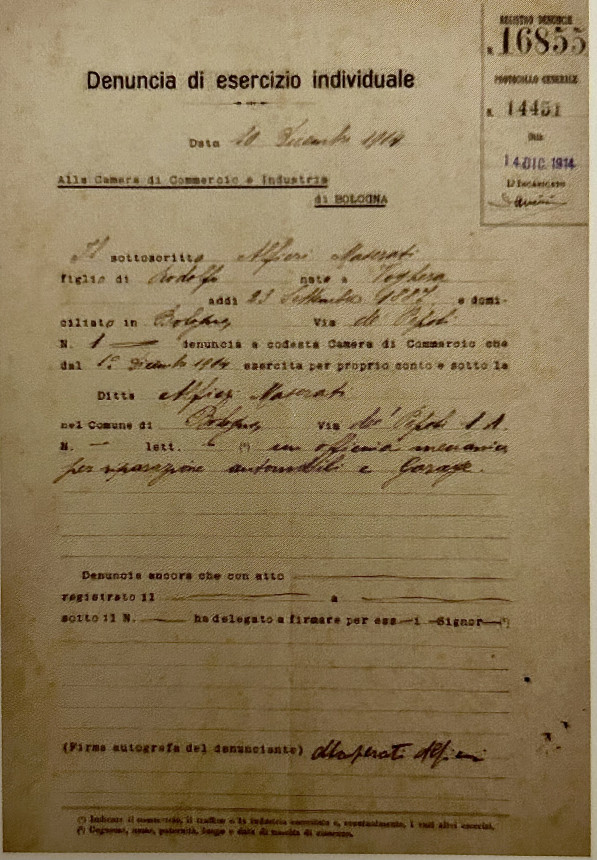 REGISTRO DENUNCIE
N. 16855
PROTOCOLLO GENERALE
N. 14451
14 DIC. 1914
L'INCARICATO
Denuncia di esercizio individuale
Data 10 Dicembre 1914
Alla Camera di Commercio e Industria
di BOLOGNA
Il sottoscritto Alfieri Maserati
figlio di Rodolfo nato a Voghera
addì 23 Settembre 1887 e domi-
ciliato in Bologna Via de' Pepoli
N. 1 denuncia a codesta Camera di Commercio che
dal 1° Dicembre 1914 esercita per proprio conto e sotto la
Ditta Alfieri Maserati
nel Comune di Bologna Via de' Pepoli 1 A.
N. — lett. (¹) un officina meccanica
per riparazione automobili e Garage.
Denuncia ancora che con atto
registrato il a
sotto il N. ha delegato a firmare per ess i Signor (²)
(Firma autografa del denunciante) Maserati Alfieri
(¹) Indicare il commercio, il traffico o la industria esercitata e, eventualmente, i vari altri esercizi.
(²) Cognome, nome, paternità, luogo e data di nascita di ciascuno.